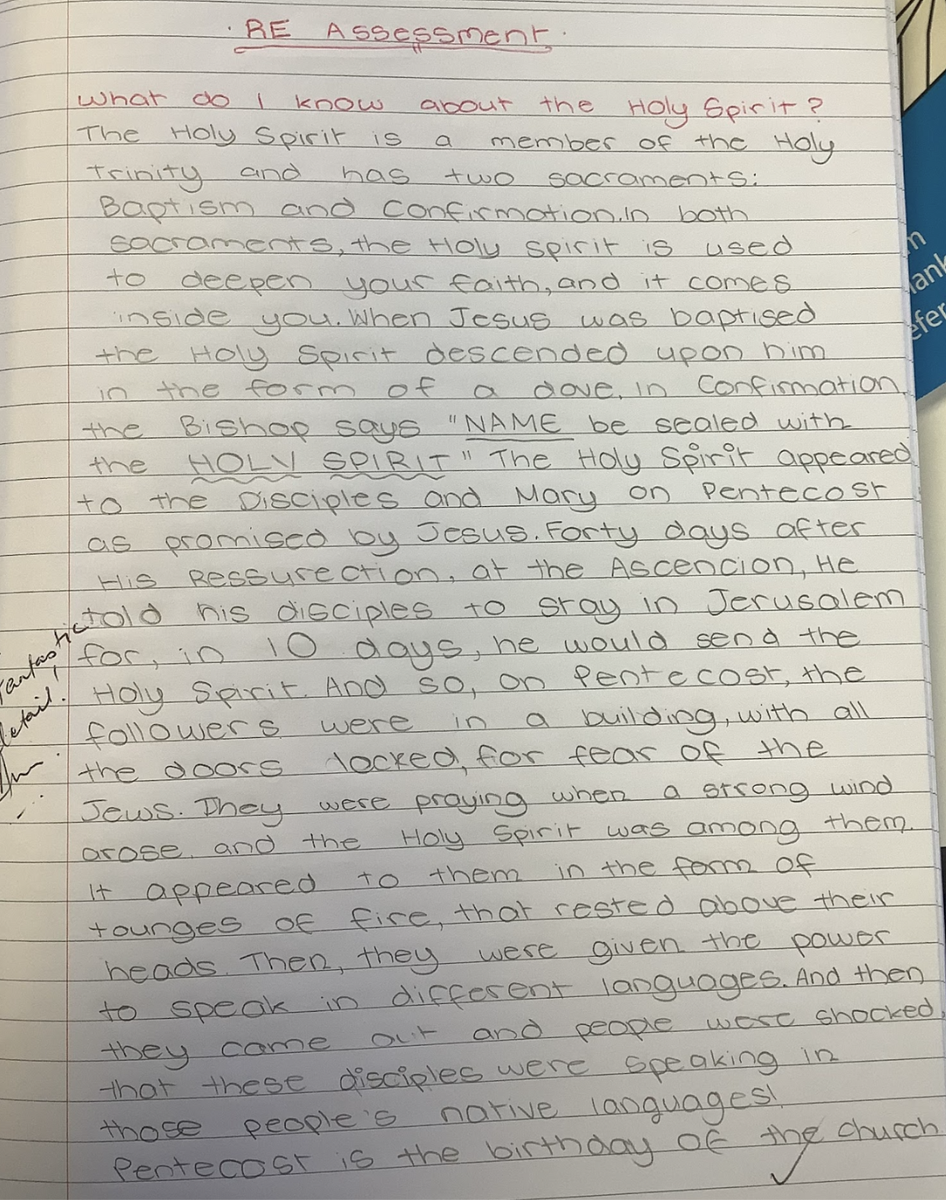 RE Assessment
What do I know about the Holy Spirit?
The Holy Spirit is a member of the Holy
Trinity and has two sacraments:
Baptism and Confirmation. In both
sacraments, the Holy Spirit is used
to deepen your faith, and it comes
inside you. When Jesus was baptised
the Holy Spirit descended upon him
in the form of a dove. In Confirmation
the Bishop says "NAME be sealed with
the HOLY SPIRIT" The Holy Spirit appeared
to the Disciples and Mary on Pentecost
as promised by Jesus. Forty days after
His Ressurection, at the Ascencion, He
told his disciples to stay in Jerusalem
for, in 10 days, he would send the
Fantastic
Holy Spirit. And so, on Pentecost, the
detail!
followers were in a building, with all
the doors locked, for fear of the
Jews. They were praying when a strong wind
arose. and the Holy Spirit was among them.
It appeared to them in the form of
tounges of fire, that rested above their
heads. Then, they were given the power
to speak in different languages. And then
they came out and people were shocked
that these disciples were speaking in
those people's native languages!
Pentecost is the birthday of the church